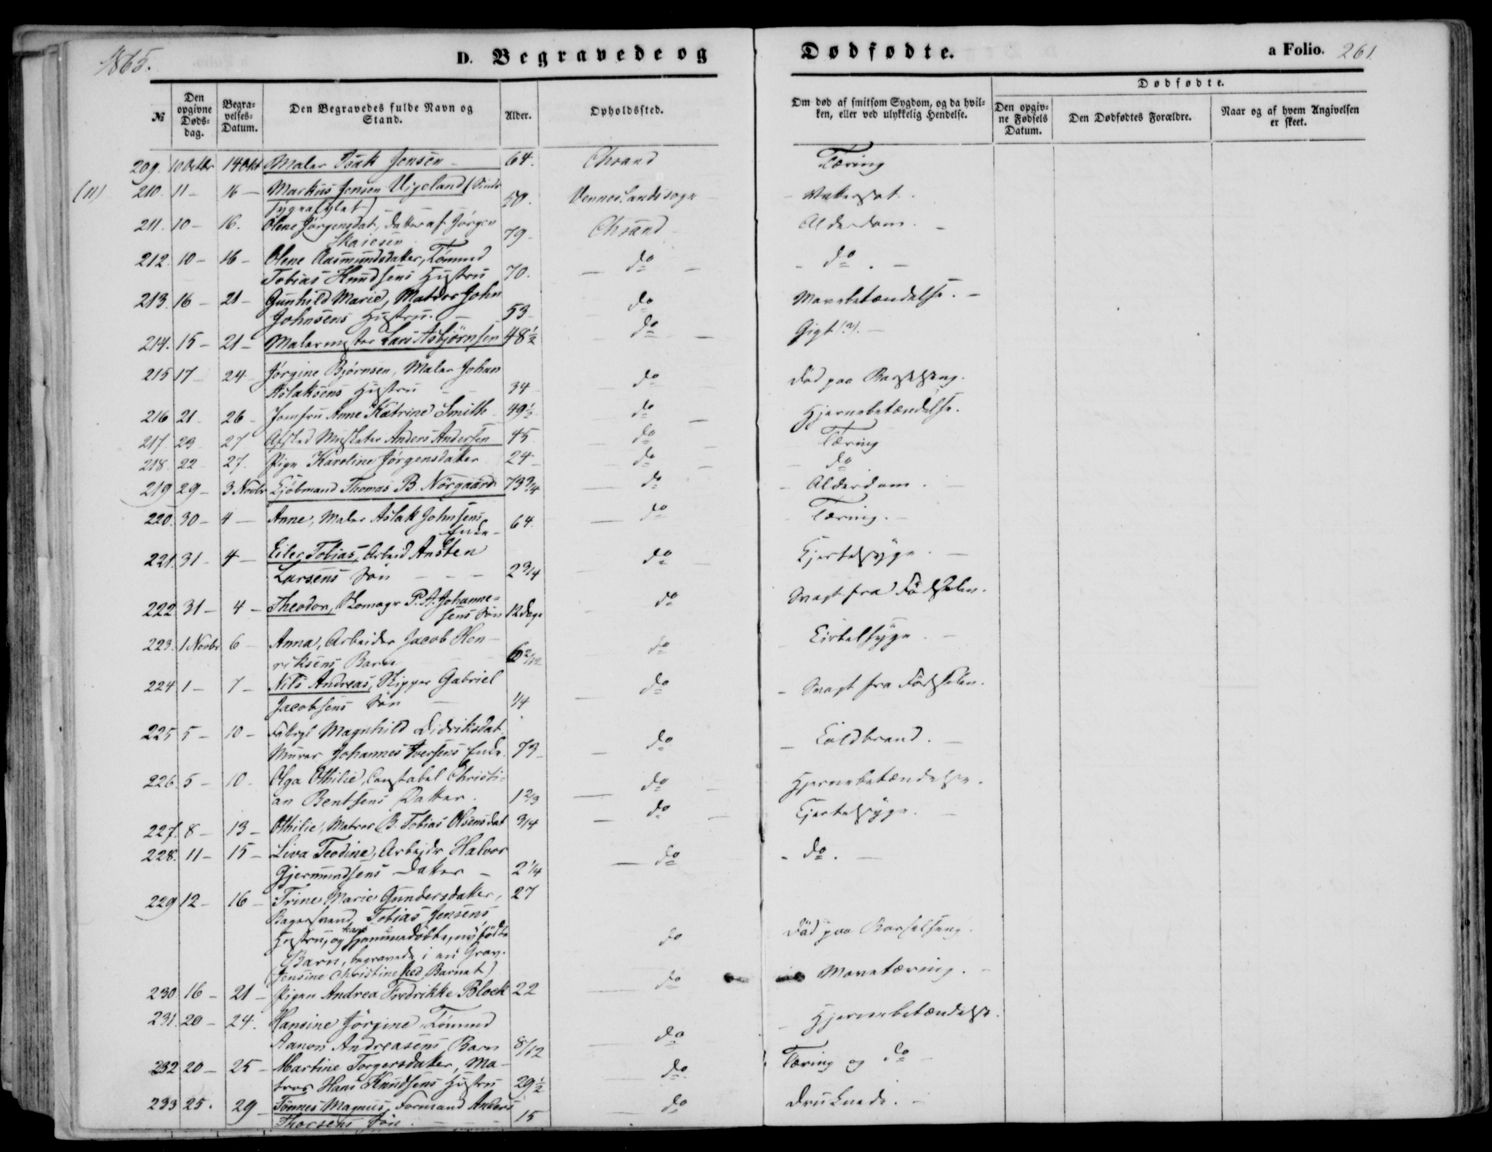 1865.
D. Begravede og Dødfødte. a Folio. 261
№ Den opgivne Døds-dag. Begra-velses-Datum. Den Begravedes fulde Navn og Stand. Alder. Opholdssted. Om død af smitsom Sygdom, og da hvil-ken, eller ved ulykkelig Hendelse. Dødfødte. Den opgiv-ne Fødsels Datum. Den Dødfødtes Forældre. Naar og af hvem Angivelsen er skeet.
209. 10 Octbr 14 Octbr Maler Isak Jensen - 64. Chrsand Tæring
(11) 210. 11 - 16 - Markus Jensen Vigeland
59. Vennesla Landsogn
211. 10 - 16. Olene Jørgensdat, Datter af Jørgen
79 Chrsand Alderdom. -
212. 10 - 16 - Olene Aasmundsdatter, Tømmd
Tobias Knudsens Hustru 70. - do - - do. -
213. 16 - 21 - Gunhild Marie, Matros John
Johnsens Hustru. - 53 - do Mavebetændelse. -
214. 15 - 21 - Malermester Lars Asbjørnsen 48½ - do - Gigt (?). -
215 17 - 24 - Jørgine Bjørnsen, Maler Johan
Aslaksens Hustru 34 - do Død paa Barselseng.
216 21 - 26 - Jomfru Anne Katrine Smith - 49½ - do - Hjernebetændelse.
217 23 27 Anders Andersen 45 - do Tæring
218. 22 - 27. Pigen Karoline Jørgensdatter 24 - - do - - do
219 29 - 3 Novbr Kjøbmand Thomas B. Nørgaard 73¾ - do - Alderdom. -
220. 30 - 4 - Anne, Maler Aslak Johnsens
Enke - 64. - do - Tæring. -
221. 31 - 4 - Eilec Tobias, Arbeid Ansten
Larsens Søn - - - 2¾ - do - Kjertelsyge. -
222 31 - 4 - Theodor, Skomagr P. A. Johanne-
sens Søn 12 Dage - do Svagt fra Fødselen.
223. 1 Novbr 6 - Anna, Arbeider Jacob Hen-
riksens Barn - do Kirtelsyge. -
224. 1 - 7 - Nils Andreas, Skipper Gabriel
Jacobsens Søn - ¼ - do - Svagt fra Fødselen.
225 5 - 10 - Magnhild Didriksdat,
Murer Johannes Iversens Enke 73 - do - Koldbrand. -
226. 5 - 10. Olga Othilie, Constabel Christi-
an Bentsens Datter. 1⅔ - do - Hjernebetændelse.
227. 8 - 13 - Othilie, Matros B. Tobias Olsens dat ¾ - do - Kjertelsyge. -
228. 11 - 15 - Liva Teodine, Arbejdr Halvor
Gjermundsens Datter - 2¼ - do - do. -
229 12 - 16 - Trine Marie Gundersdatter, 27
Bagersvend Tobias Jensens
Hustru, og nyfødte do Død paa Barselseng.
Barn, begravede i en Grav.
(Jensine Christine hed Barnet)
230. 16 - 21 - Pigen Andrea Fredrikke Block 22 - do - Mavetæring. -
231. 20 - 24. Hansine Jørgine Tømmd
Aanon Andreasens Barn 8/12 - do - Hjernebetændelse.
232 20 - 25 - Martine Torgersdatter, Ma-
tros Hans Knudsens Hustru 29½ - do Tæring og do
233 25. 29 - Tønnes Magnus, Formand Anders
Thorsens Søn. - 15 - do Druknede. -